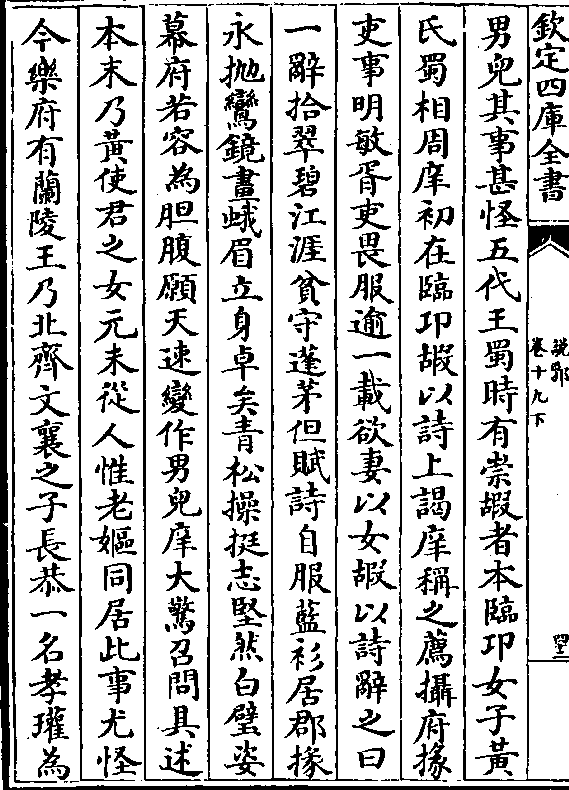 欽定四庫全書
說郛
卷十九下
男兒其事甚怪五代王蜀時有崇嘏者本臨卭女子黃
氏蜀相周庠初在臨卭嘏以詩上謁庠稱之薦攝府掾
吏事明敏胥吏畏服逾一載欲妻以女嘏以詩辭之曰
一辭拾翠碧江涯貧守蓬茅但賦詩自服藍衫居郡掾
永抛鸞鏡畫蛾眉立身卓矣青松操挺志堅然白璧姿
幕府若容為胆腹願天速變作男兒庠大驚召問具述
本末乃黃使君之女元末從人惟老嫗同居此事尤怪
今樂府有蘭陵王乃北齊文襄之子長恭一名孝瓘為